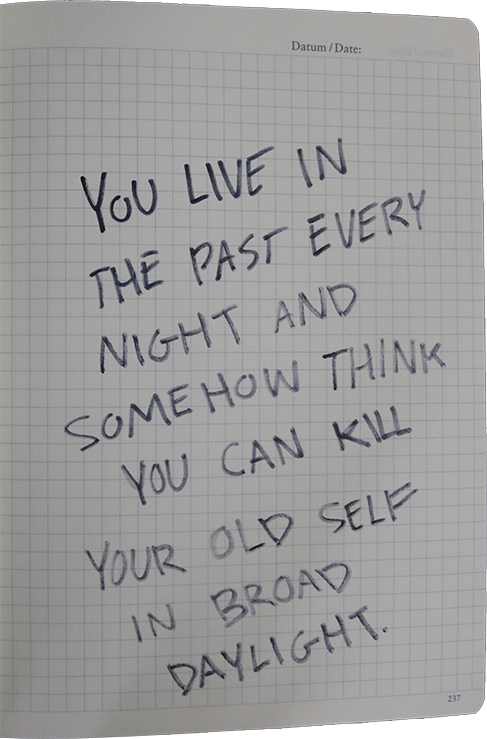 Datum / Date:
YOU LIVE IN
THE PAST EVERY
NIGHT AND
SOMEHOW THINK
YOU CAN KILL
YOUR OLD SELF
IN BROAD
DAYLIGHT.
237